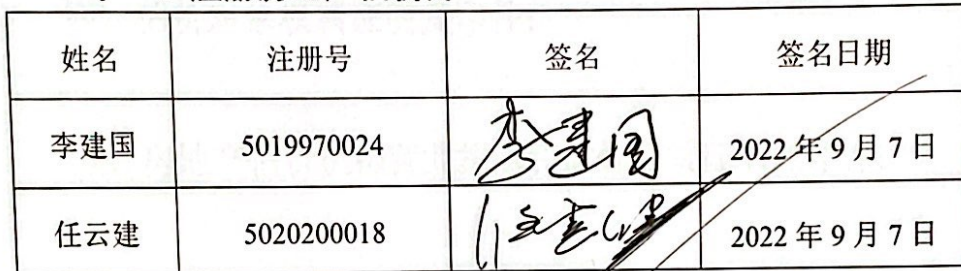 姓名 注册号 签名 签名日期
李建国 5019970024 李建国 2022年9月7日
任云建 5020200018 2022年9月7日